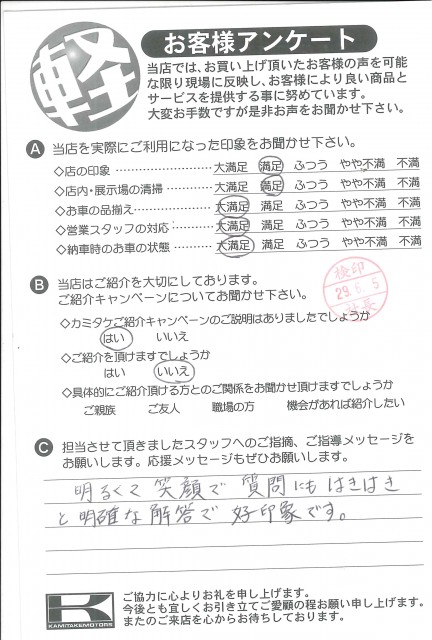 軽
お客様アンケート
当店では、お買い上げ頂いたお客様の声を可能
な限り現場に反映し、お客様により良い商品と
サービスを提供する事に努めています。
大変お手数ですが是非お声をお聞かせ下さい。
A 当店を実際にご利用になった印象をお聞かせ下さい。
◇店の印象 大満足 満足 ふつう やや不満 不満
◇店内・展示場の清掃 大満足 満足 ふつう やや不満 不満
◇お車の品揃え 大満足 満足 ふつう やや不満 不満
◇営業スタッフの対応 大満足 満足 ふつう やや不満 不満
◇納車時のお車の状態 大満足 満足 ふつう やや不満 不満
B 当店はご紹介を大切にしております。
ご紹介キャンペーンについてお聞かせ下さい。
検印
29.6.5
社長
◇カミタケご紹介キャンペーンのご説明はありましたでしょうか
はい いいえ
◇ご紹介を頂けますでしょうか
はい いいえ
◇具体的にご紹介頂ける方とのご関係をお聞かせ頂けますでしょうか
ご親族 ご友人 職場の方 機会があれば紹介したい
C 担当させて頂きましたスタッフへのご指摘、ご指導メッセージを
お願いします。応援メッセージもぜひお願いします。
明るくて笑顔で質問にもはきはき
と明確な解答で好印象です。
K
KAMITAKEMOTORS
ご協力に心よりお礼を申し上げます。
今後とも宜しくお引き立てご愛顧の程お願い申し上げます。
またのご来店を心からお待ちしております。